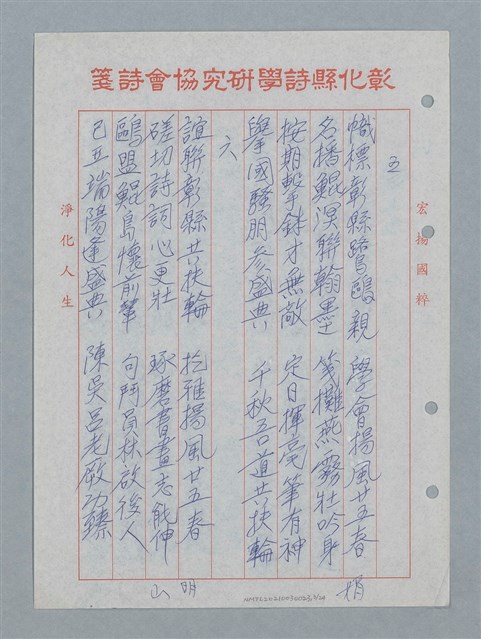 彰化縣詩學研究協會詩箋
宏揚國粹
五
幟標彰縣鷺鷗親 學會揚風廿五春
名播鯤溟聯翰墨 箋攤燕霧壯吟身
按期擊鉢才無敵 定日揮毫筆有神
舉國騷朋參盛典 千秋吾道共扶輪
六
誼聯彰縣共扶輪 扢雅揚風廿五春
磋切詩詞心更壯 琢磨書畫志能伸
鷗盟鯤島懷前輩 句鬥員林啟後人
己丑端陽逢盛典 陳吳呂老厥功臻
淨化人生
明山